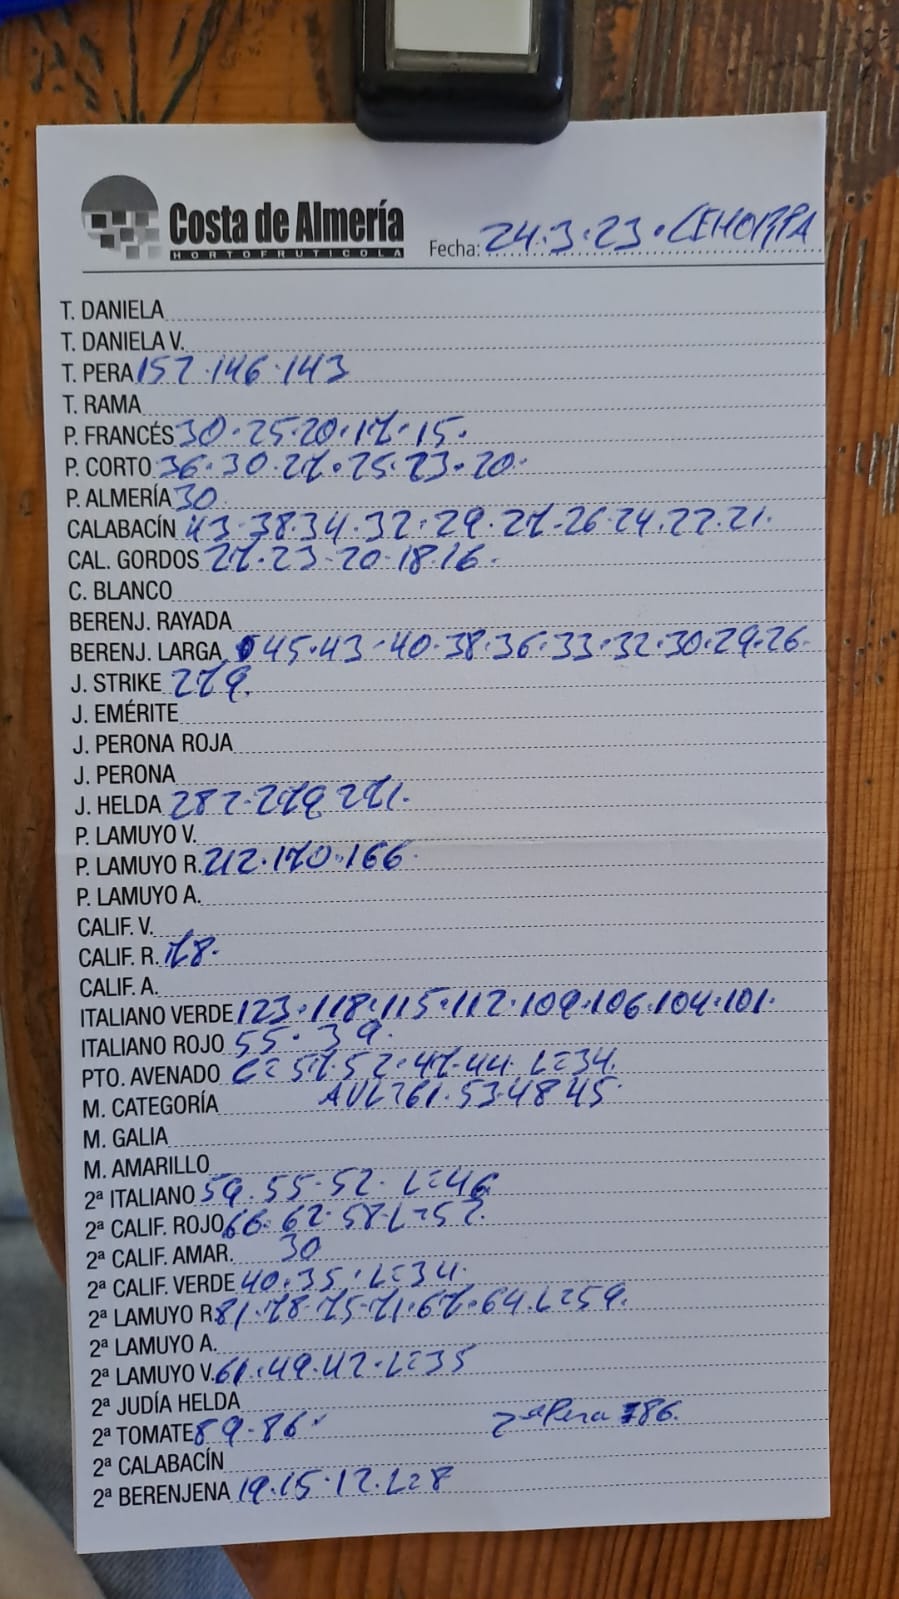 Costa de Almería
HORTOFRUTICOLA
Fecha: 24.3.23 · CEHORPA
T. DANIELA
T. DANIELA V.
T. PERA 152·146·143
T. RAMA
P. FRANCÉS 30·25·20·17·15·
P. CORTO 36·30·27·25·23·20·
P. ALMERÍA 30
CALABACÍN 43·38·34·32·29·27·26·24·22·21·
CAL. GORDOS 27·23·20·18·16·
C. BLANCO
BERENJ. RAYADA
BERENJ. LARGA 45·43·40·38·36·33·32·30·29·26·
J. STRIKE 279.
J. EMÉRITE
J. PERONA ROJA
J. PERONA
J. HELDA 282·279 271·
P. LAMUYO V.
P. LAMUYO R. 212·170·166·
P. LAMUYO A.
CALIF. V.
CALIF. R. 78·
CALIF. A.
ITALIANO VERDE 123·118·115·112·109·106·104·101·
ITALIANO ROJO 55·39·
PTO. AVENADO C= 57·52·47·44· L=34.
M. CATEGORÍA AVL=61·53·48 45·
M. GALIA
M. AMARILLO
2ª ITALIANO 59·55·52· L=46
2ª CALIF. ROJO 66·62·58·L=52.
2ª CALIF. AMAR. 30
2ª CALIF. VERDE 40·35· L=34·
2ª LAMUYO R. 81·78·75·71·67·64·L=59.
2ª LAMUYO A.
2ª LAMUYO V. 61·49·42·L=35
2ª JUDÍA HELDA
2ª TOMATE 89·86· 2ª Pera 86.
2ª CALABACÍN
2ª BERENJENA 19·15·12·L=8